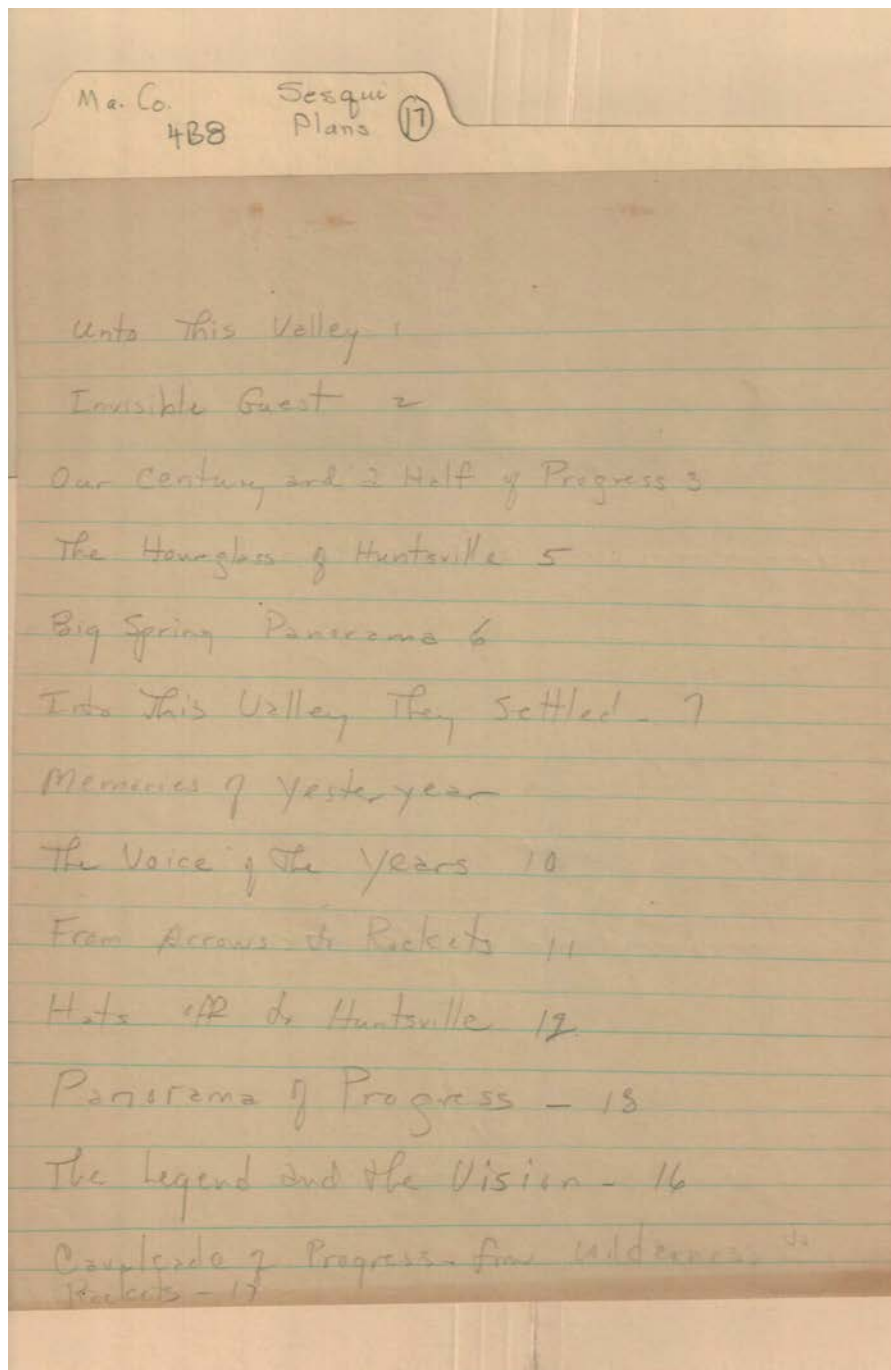 Ma. Co. Sesqui
4B8 Plans 17
Unto This Valley 1
Invisible Guest 2
Our Century and a Half of Progress 3
The Hourglass of Huntsville 5
Big Spring Panorama 6
Into This Valley They Settled - 7
Memories of Yesteryear
The Voice of the Years 10
From Arrows to Rockets 11
Hats off to Huntsville 12
Panorama of Progress - 13
The Legend and the Vision - 16
Cavalcade of Progress - from Wilderness to
Rockets - 17